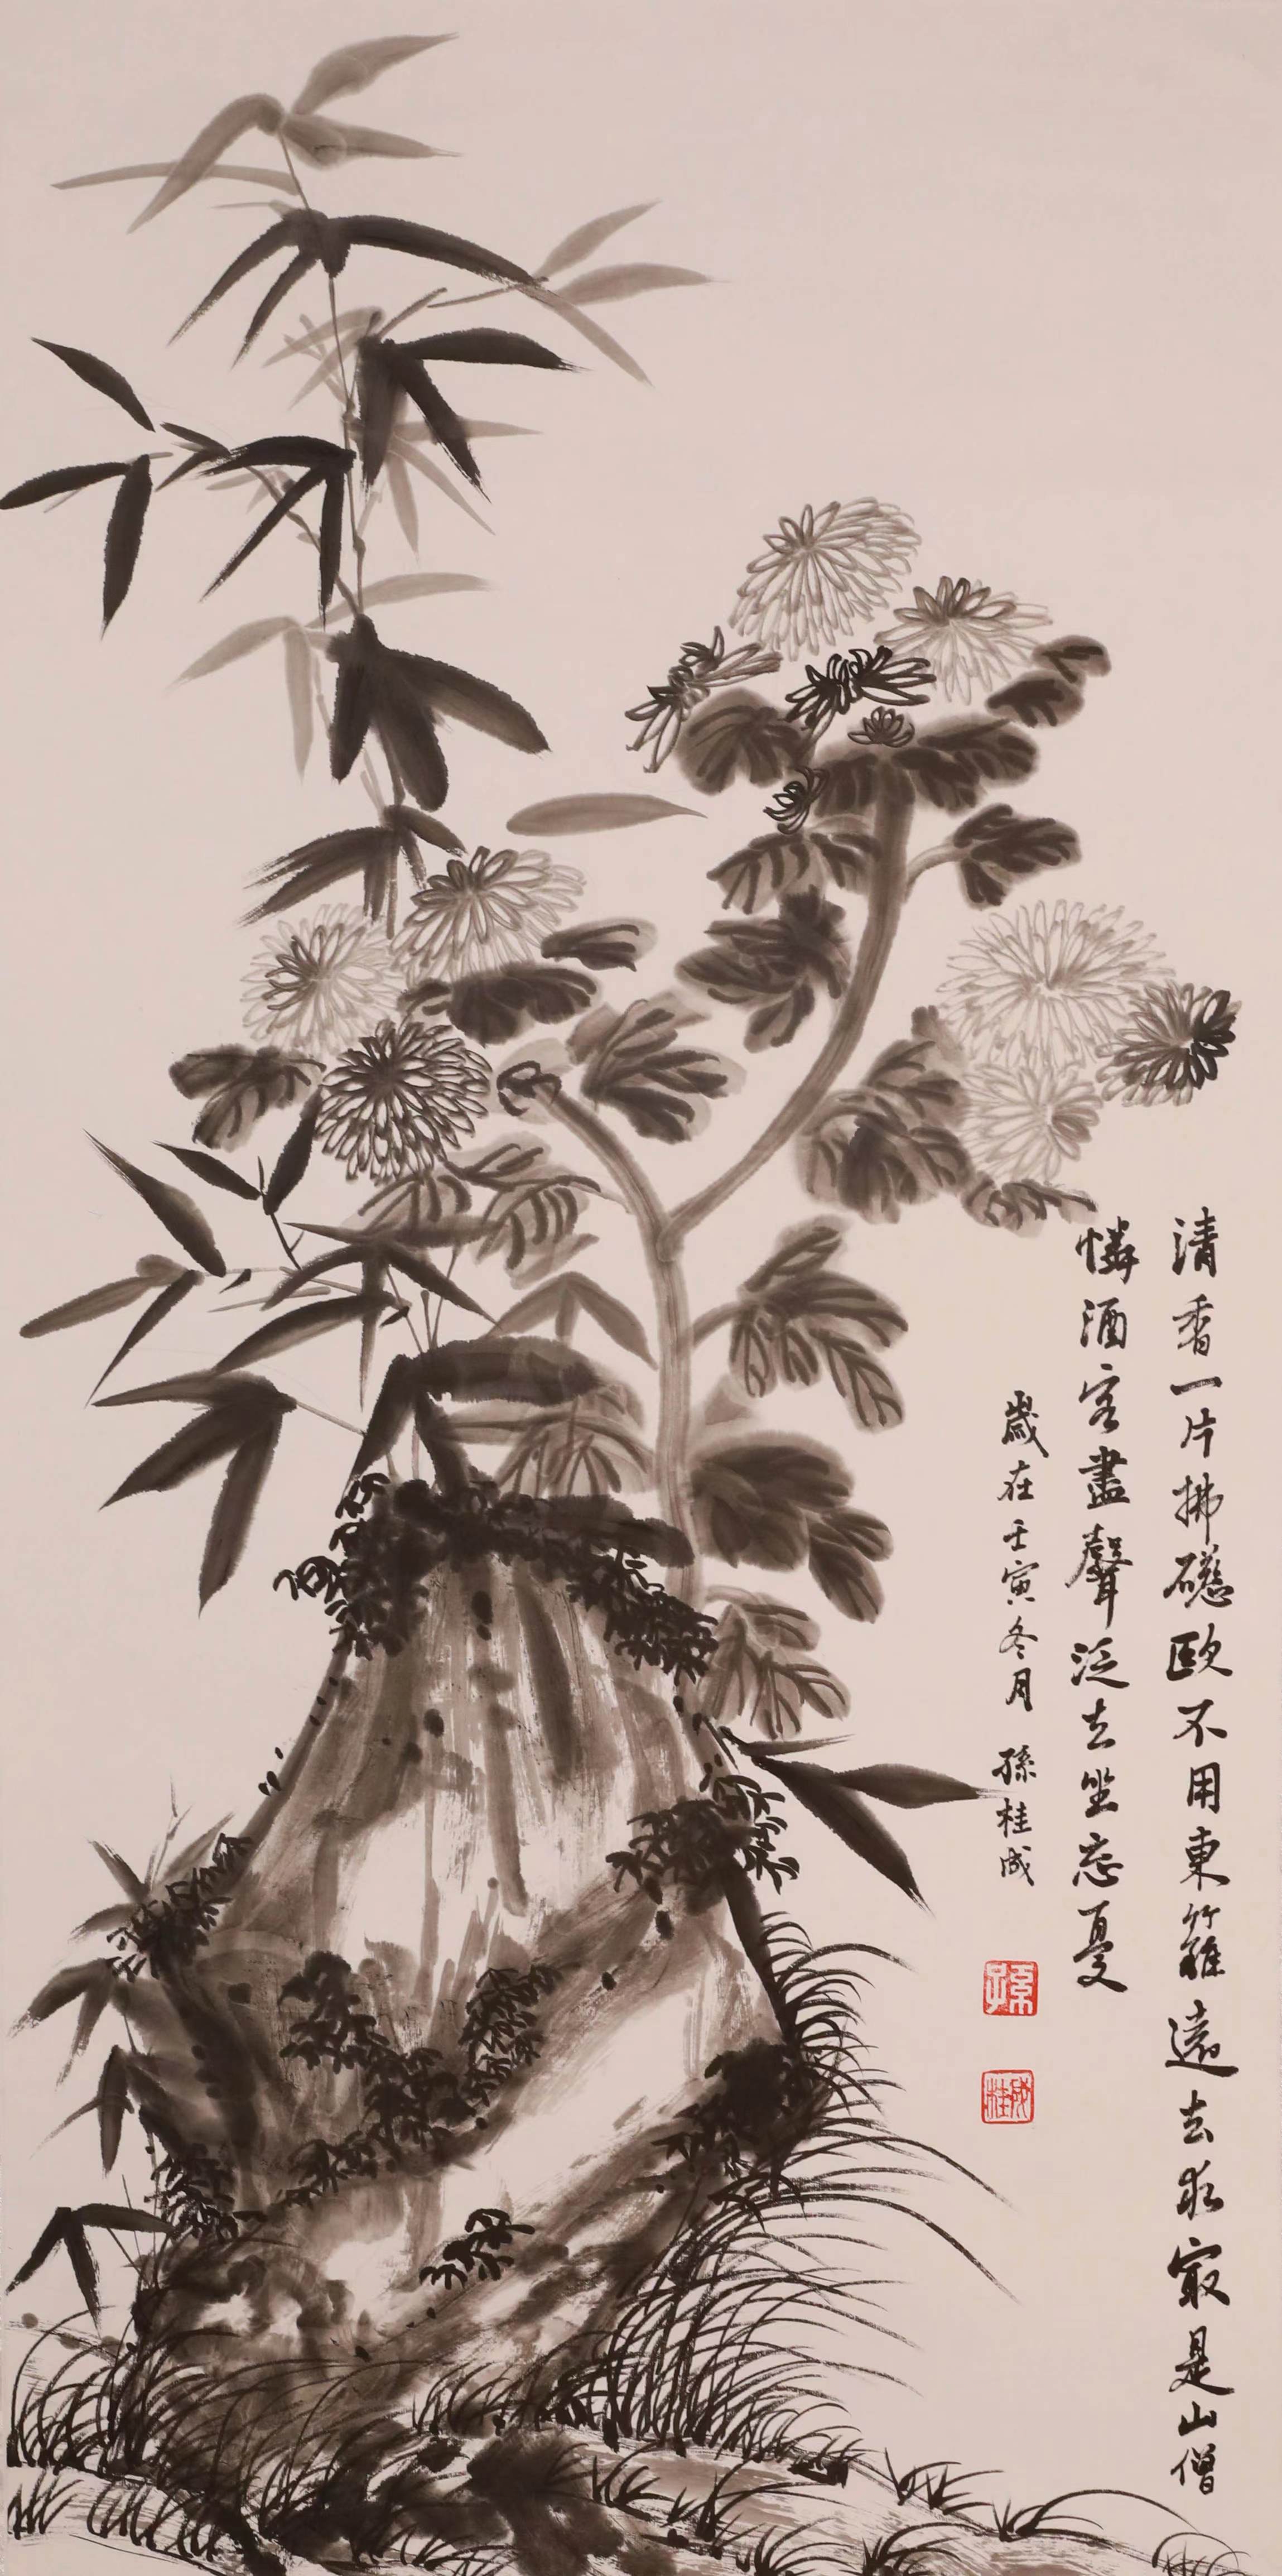 清香一片拂礠歐不用東籬遠去求寂是山僧
憐酒客盡聲泛去坐忘憂
歲在壬寅冬月 孫桂成
孫
桂成